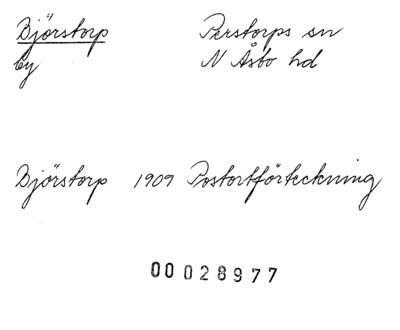 Björstorp Perstorps sn
by N Åsbo hd
Björstorp 1909 Postortförteckning
00 028977